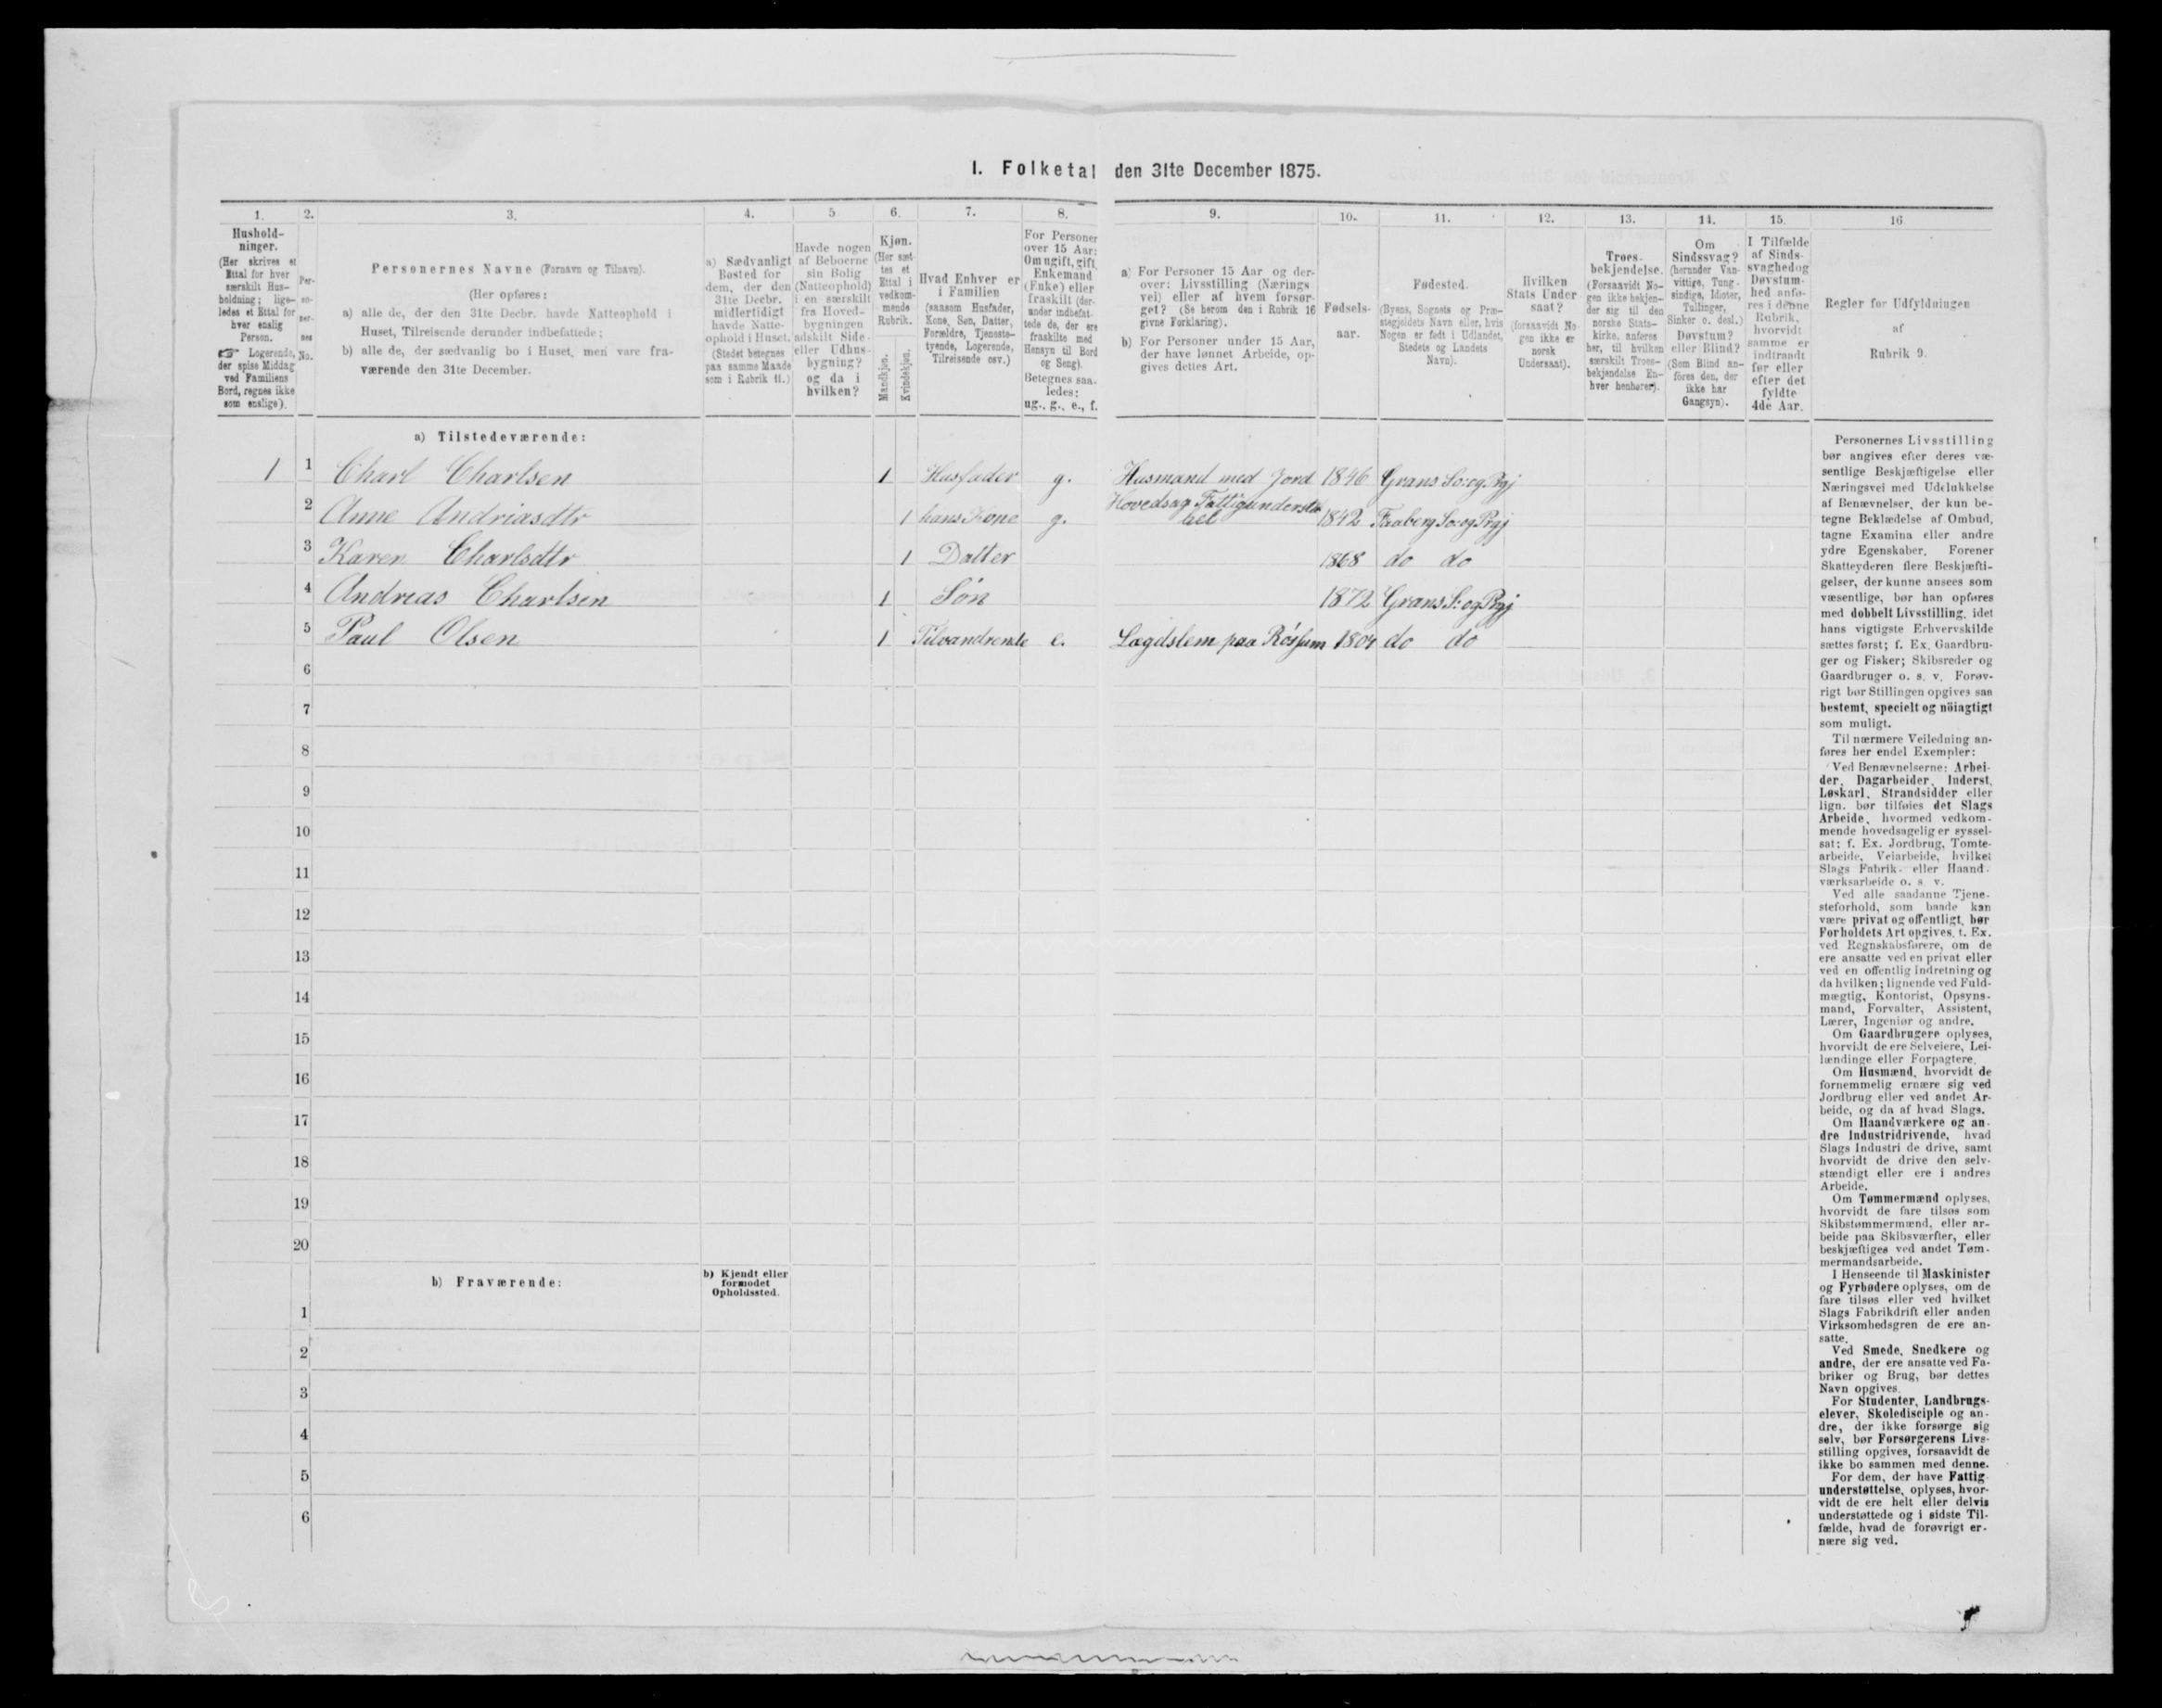 1. Folketal den 31te December 1875.
1. 2. 3. 4. 5 6. 7. 8. 9. 10. 11. 12. 13. 14. 15. 16
Hushold-
ninger.
(Her skrives et
Ettal for hver
særskilt Hus-
holdning; lige-
ledes et Ettal for
hver enslig
Person.
☞ Logerende,
der spise Middag
ved Familiens
Bord, regnes ikke
som enslige).
Per-
so-
ner-
nes
No.
Personernes Navne (Fornavn og Tilnavn).
(Her opføres:
a) alle de, der den 31te Decbr. havde Natteophold i
Huset, Tilreisende derunder indbefattede;
b) alle de, der sædvanlig bo i Huset, men vare fra-
værende den 31te December.
a) Sædvanligt
Bosted for
dem, der den
31te Decbr.
midlertidigt
havde Natte-
ophold i Huset.
(Stedet betegnes
paa samme Maade
som i Rubrik 11.)
Havde nogen
af Beboerne
sin Bolig
(Natteophold)
i en særskilt
fra Hoved-
bygningen
adskilt Side-
eller Udhus-
bygning?
og da i
hvilken?
Kjøn.
(Her sæt-
tes et
Ettal i
vedkom-
mende
Rubrik.
Mandkjøn.
Kvindekjøn.
Hvad Enhver er
i Familien
(saasom Husfader,
Kone, Søn, Datter,
Forældre, Tjeneste-
tyende, Logerende,
Tilreisende osv.)
For Personer
over 15 Aar:
Om ugift, gift,
Enkemand
(Enke) eller
fraskilt (der-
under indbefat-
tede de, der ere
fraskilte med
Hensyn til Bord
og Seng).
Betegnes saa-
ledes:
ug., g., e., f.
a) For Personer 15 Aar og der-
over: Livsstilling (Nærings
vei) eller af hvem forsør-
get? (Se herom den i Rubrik 16
givne Forklaring).
b) For Personer under 15 Aar,
der have lønnet Arbeide, op-
gives dettes Art.
Fødsels-
aar.
Fødested.
(Byens, Sognets og Præ-
stegjeldets Navn eller, hvis
Nogen er født i Udlandet,
Stedets og Landets
Navn).
Hvilken
Stats Under
saat?
(forsaavidt No-
gen ikke er
norsk
Undersaat).
Troes-
bekjendelse.
(Forsaavidt No-
gen ikke bekjen-
der sig til den
norske Stats-
kirke, anføres
her, til hvilken
særskilt Troes-
bekjendelse En-
hver henhører).
Om
Sindssvag?
(herunder Van-
vittige, Tung-
sindige, Idioter,
Tullinger,
Sinker o. desl.)
Døvstum?
eller Blind?
(Som Blind an-
føres den, der
ikke har
Gangsyn).
I Tilfælde
af Sinds-
svaghedog
Døvstum-
hed anfø-
res i denne
Rubrik,
hvorvidt
samme er
indtraadt
før eller
efter det
fyldte
4de Aar.
Regler for Udfyldningen
af
Rubrik 9.
a) Tilstedeværende:
1 1 Charl Charlsen 1 Husfader g. Husmand med Jord 1846 Grans So: og Prgj
2 Anne Andriasdtr 1 hans Kone g. Hovedsag Fattigunderstø- 1842 Faaberg So: og Prgj
3 Karen Charlsdtr 1 Datter 1868 do do
4 Andreas Charlsen 1 Søn 1872 Grans S: og Prgj
5 Paul Olsen 1 Tilvandrende e. Lægdslem paa Røssum 1804 do do
6
7
8
9
10
11
12
13
14
15
16
17
18
19
20
b) Fraværende:
b) Kjendt eller
formodet
Opholdssted.
1
2
3
4
5
6
Personernes Livsstilling
bør angives efter deres væ-
sentlige Beskjæftigelse eller
Næringsvei med Udelukkelse
af Benævnelser, der kun be-
tegne Beklædelse af Ombud,
tagne Examina eller andre
ydre Egenskaber. Forener
Skatteyderen flere Beskjæfti-
gelser, der kunne ansees som
væsentlige, bør han opføres
med dobbelt Livsstilling, idet
hans vigtigste Erhvervskilde
sættes først; f. Ex. Gaardbru-
ger og Fisker; Skibsreder og
Gaardbruger o. s. v. Forøv-
rigt bør Stillingen opgives saa
bestemt, specielt og nöiagtigt
som muligt.
Til nærmere Veiledning an-
føres her endel Exempler:
Ved Benævnelserne: Arbei-
der, Dagarbeider, Inderst,
Løskarl, Strandsidder eller
lign. bør tilføies det Slags
Arbeide, hvormed vedkom-
mende hovedsagelig er syssel-
sat; f. Ex. Jordbrug, Tomte-
arbeide, Veiarbeide, hvilket
Slags Fabrik- eller Haand-
værksarbeide o. s. v.
Ved alle saadanne Tjene-
steforhold, som baade kan
være privat og offentligt, bør
Forholdets Art opgives, t. Ex.
ved Regnskabsførere, om de
ere ansatte ved en privat eller
ved en offentlig Indretning og
da hvilken; lignende ved Fuld-
mægtig, Kontorist, Opsyns-
mand, Forvalter, Assistent,
Lærer, Ingeniør og andre.
Om Gaardbrugere oplyses,
hvorvidt de ere Selveiere, Lei-
lændinge eller Forpagtere.
Om Husmænd, hvorvidt de
fornemmelig ernære sig ved
Jordbrug eller ved andet Ar-
beide, og da af hvad Slags.
Om Haandværkere og an-
dre Industridrivende, hvad
Slags Industri de drive, samt
hvorvidt de drive den selv-
stændigt eller ere i andres
Arbeide.
Om Tømmermænd oplyses,
hvorvidt de fare tilsøs som
Skibstømmermænd, eller ar-
beide paa Skibsværfter, eller
beskjæftiges ved andet Tøm-
mermandsarbeide.
I Henseende til Maskinister
og Fyrbødere oplyses, om de
fare tilsøs eller ved hvilket
Slags Fabrikdrift eller anden
Virksomhedsgren de ere an-
satte.
Ved Smede, Snedkere og
andre, der ere ansatte ved Fa-
briker og Brug, bør dettes
Navn opgives.
For Studenter, Landbrugs-
elever, Skoledisciple og an-
dre, der ikke forsørge sig
selv, bør Forsørgerens Livs-
stilling opgives, forsaavidt de
ikke bo sammen med denne.
For dem, der have Fattig-
understøttelse, oplyses, hvor-
vidt de ere helt eller delvis
understøttede og i sidste Til-
fælde, hvad de forøvrigt er-
nære sig ved.